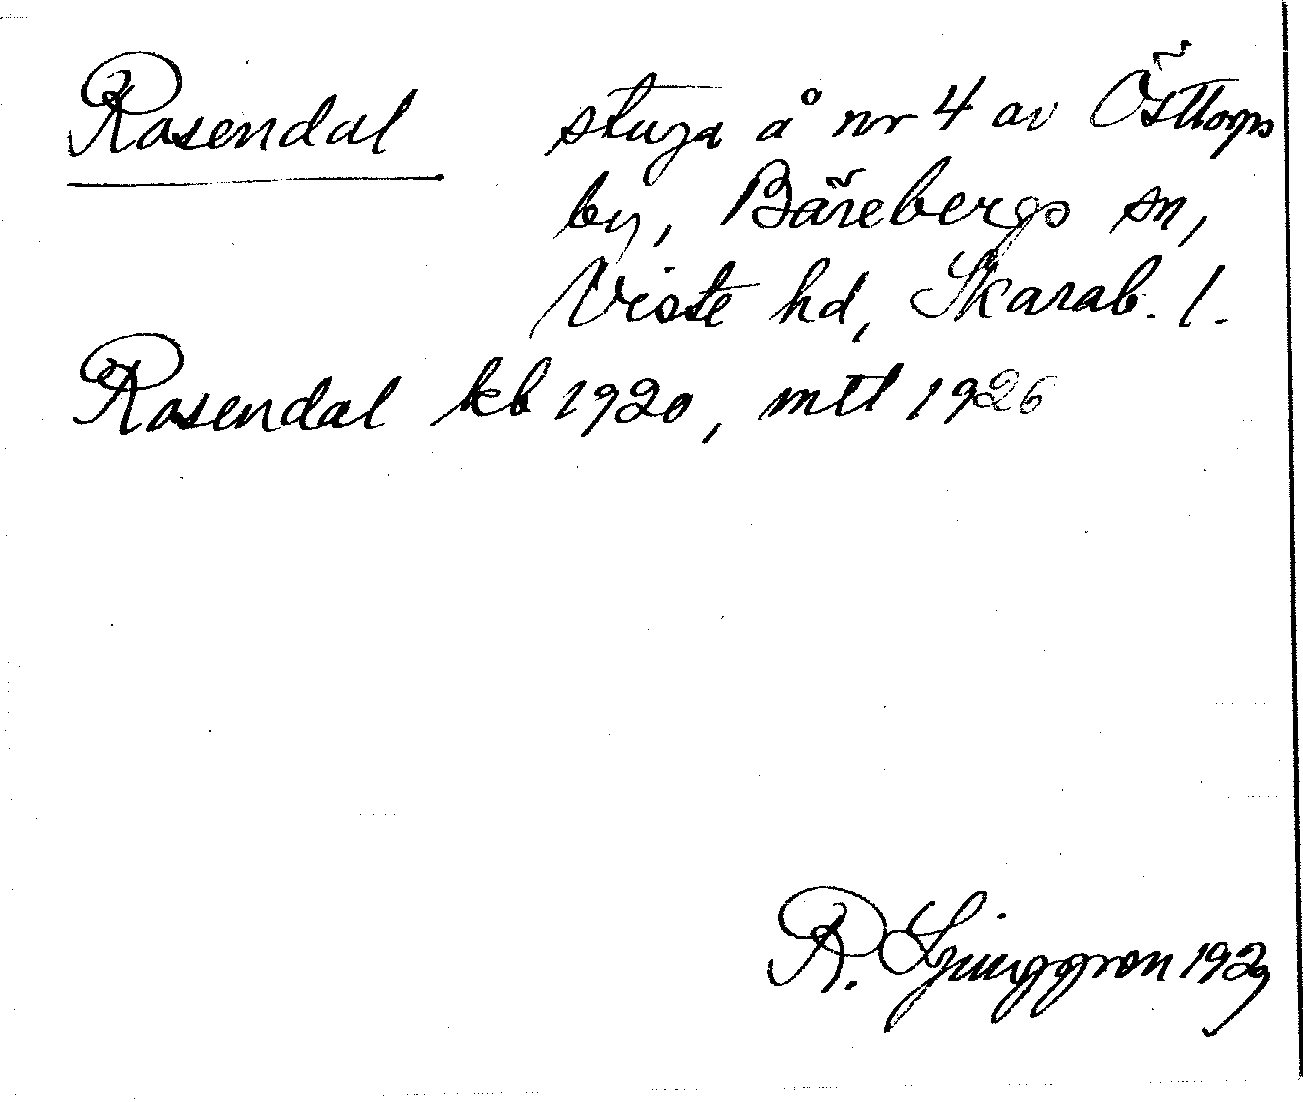 Rosendal stuga å nr 4 av Östtorps
by, Bärebergs sn,
Viste hd, Skarab. l.
Rosendal kb 1920, mtl 1926
R. Ljunggren 1929